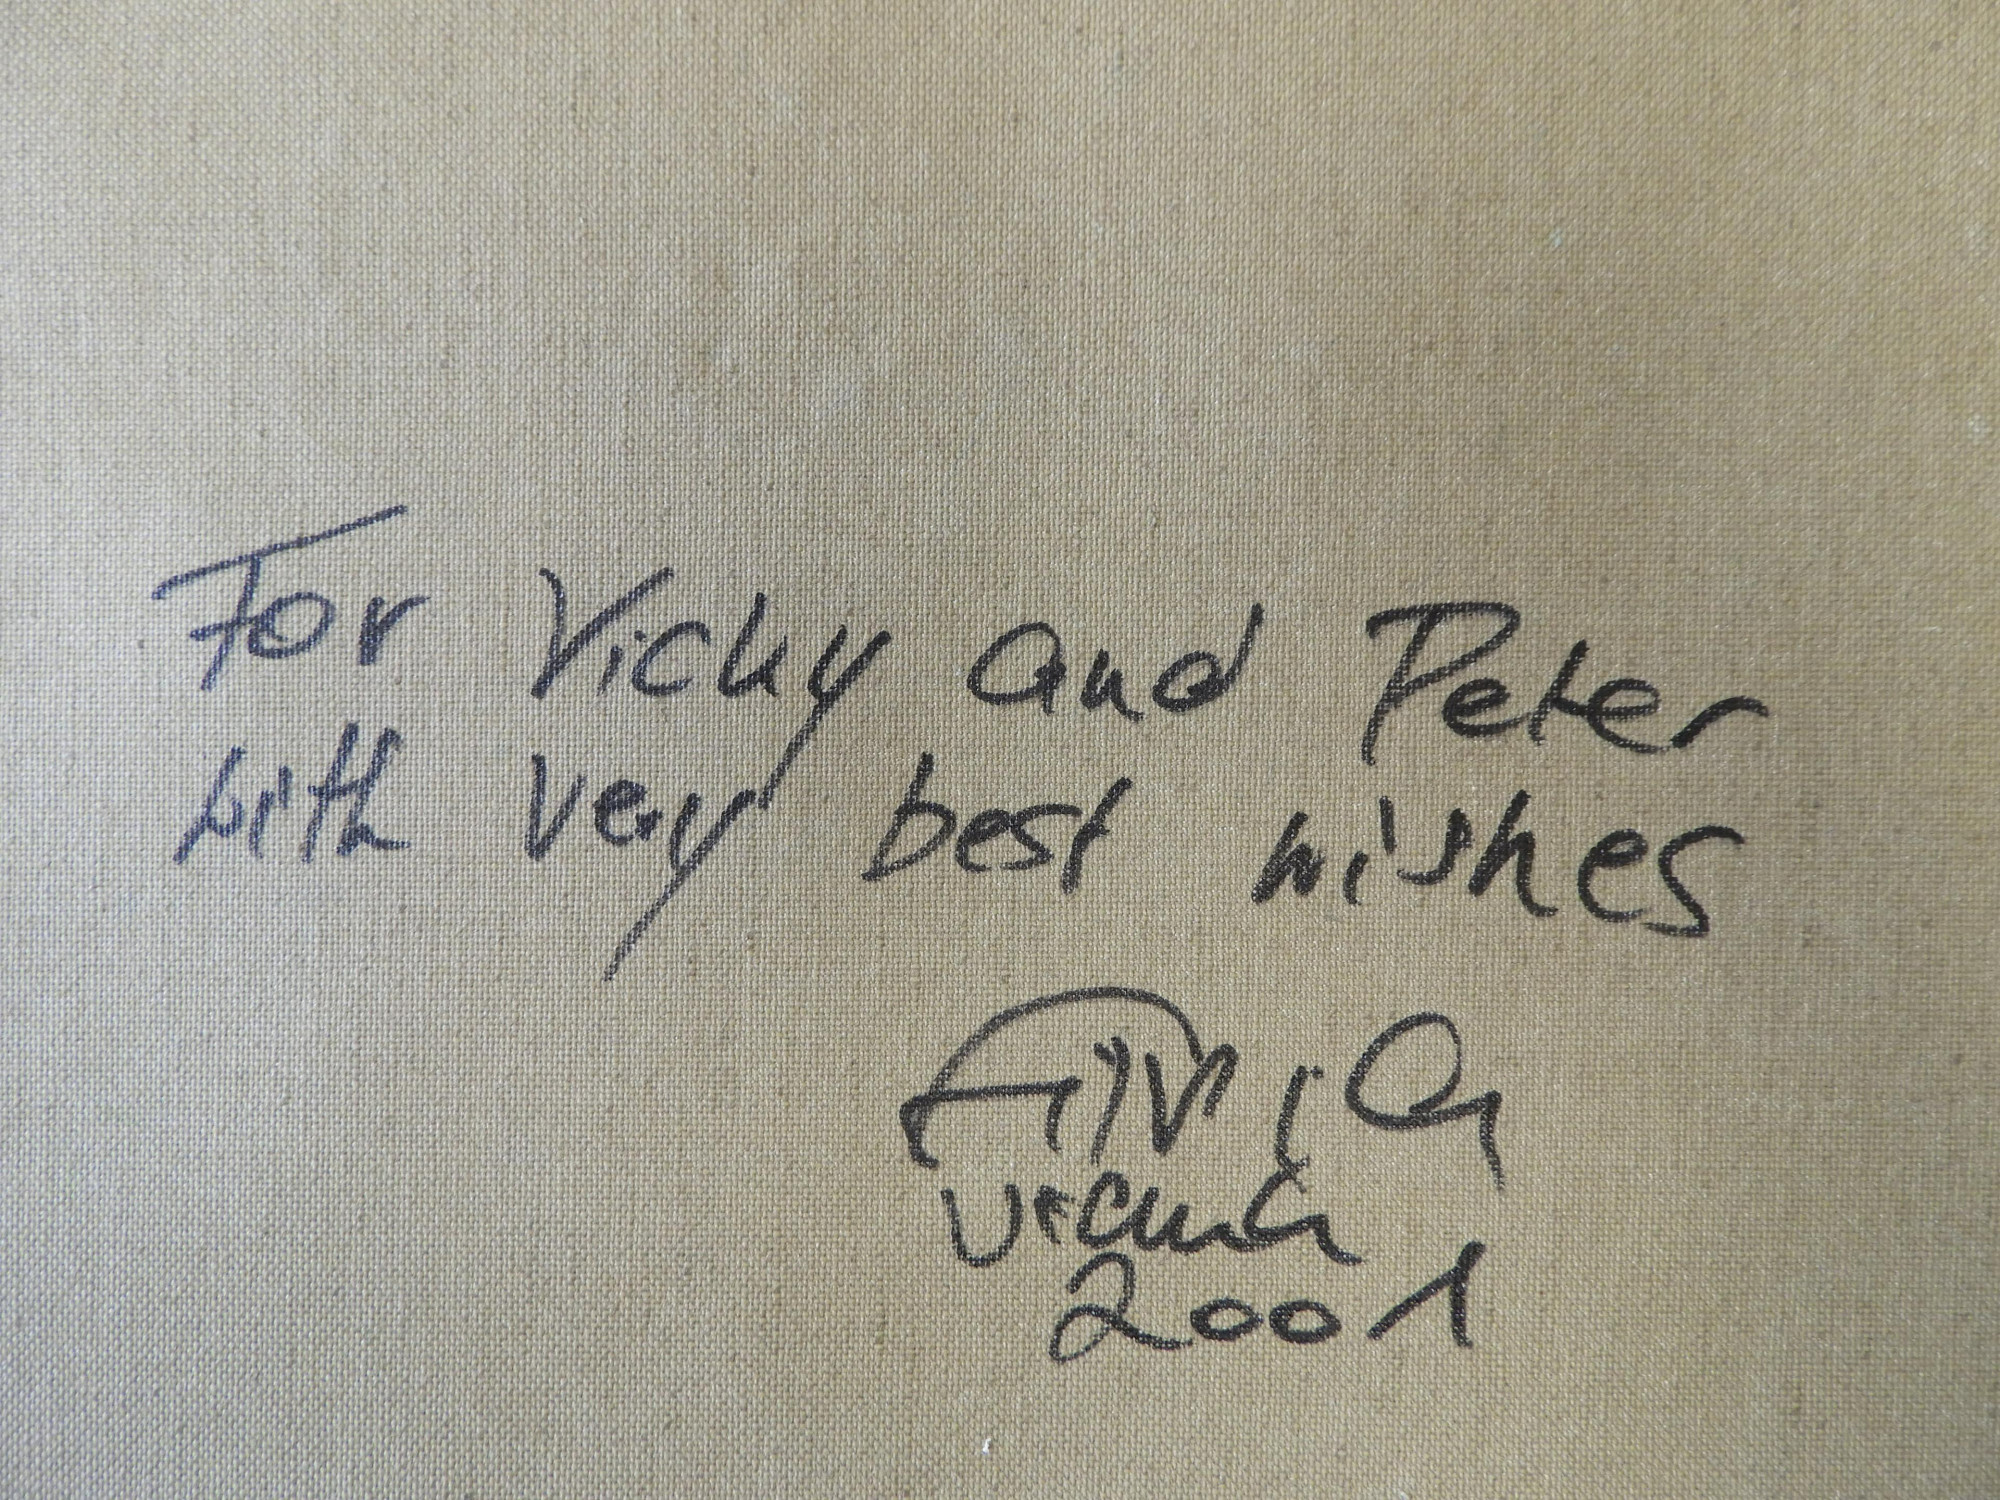 For Vicky and Peter
with very best wishes
Vienna
2001